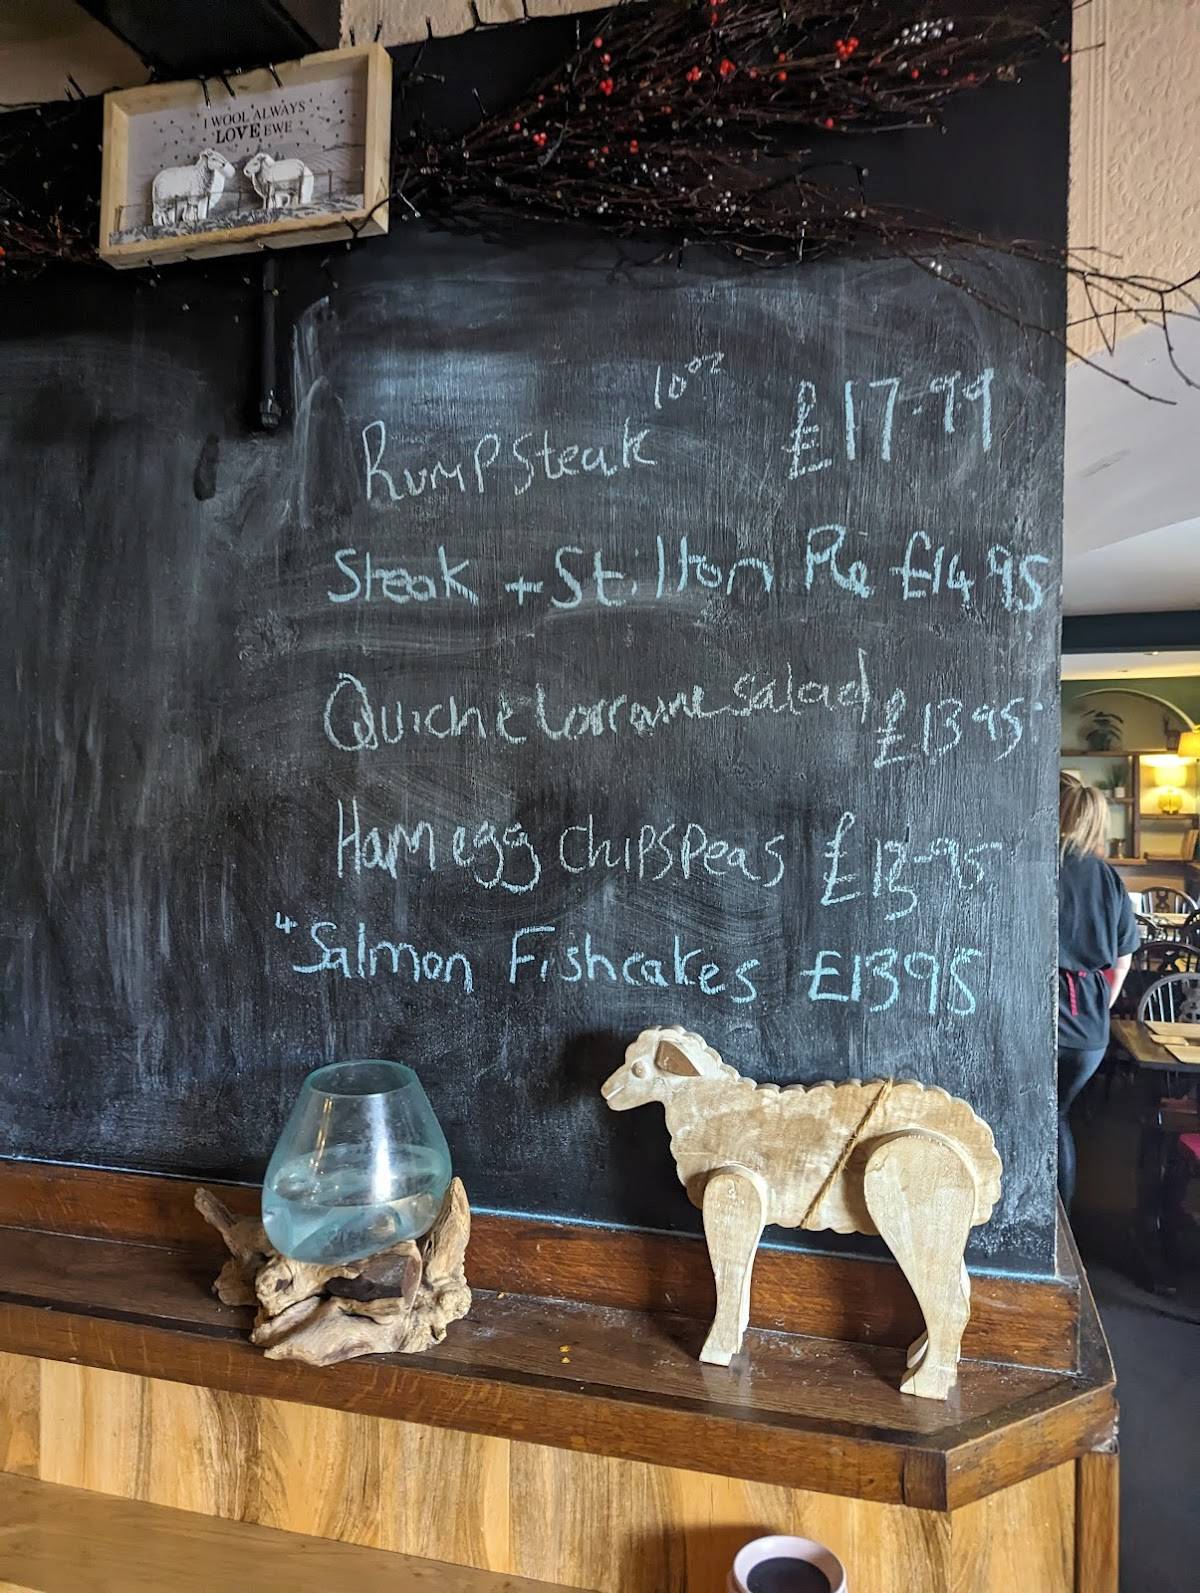 I WOOL ALWAYS
LOVE EWE
Rump Steak 10oz £17.99
Steak + Stilton Pie £14 95
Quiche Lorraine Salad £13 95
Ham egg chips peas £13-95
4 Salmon Fishcakes £13 95